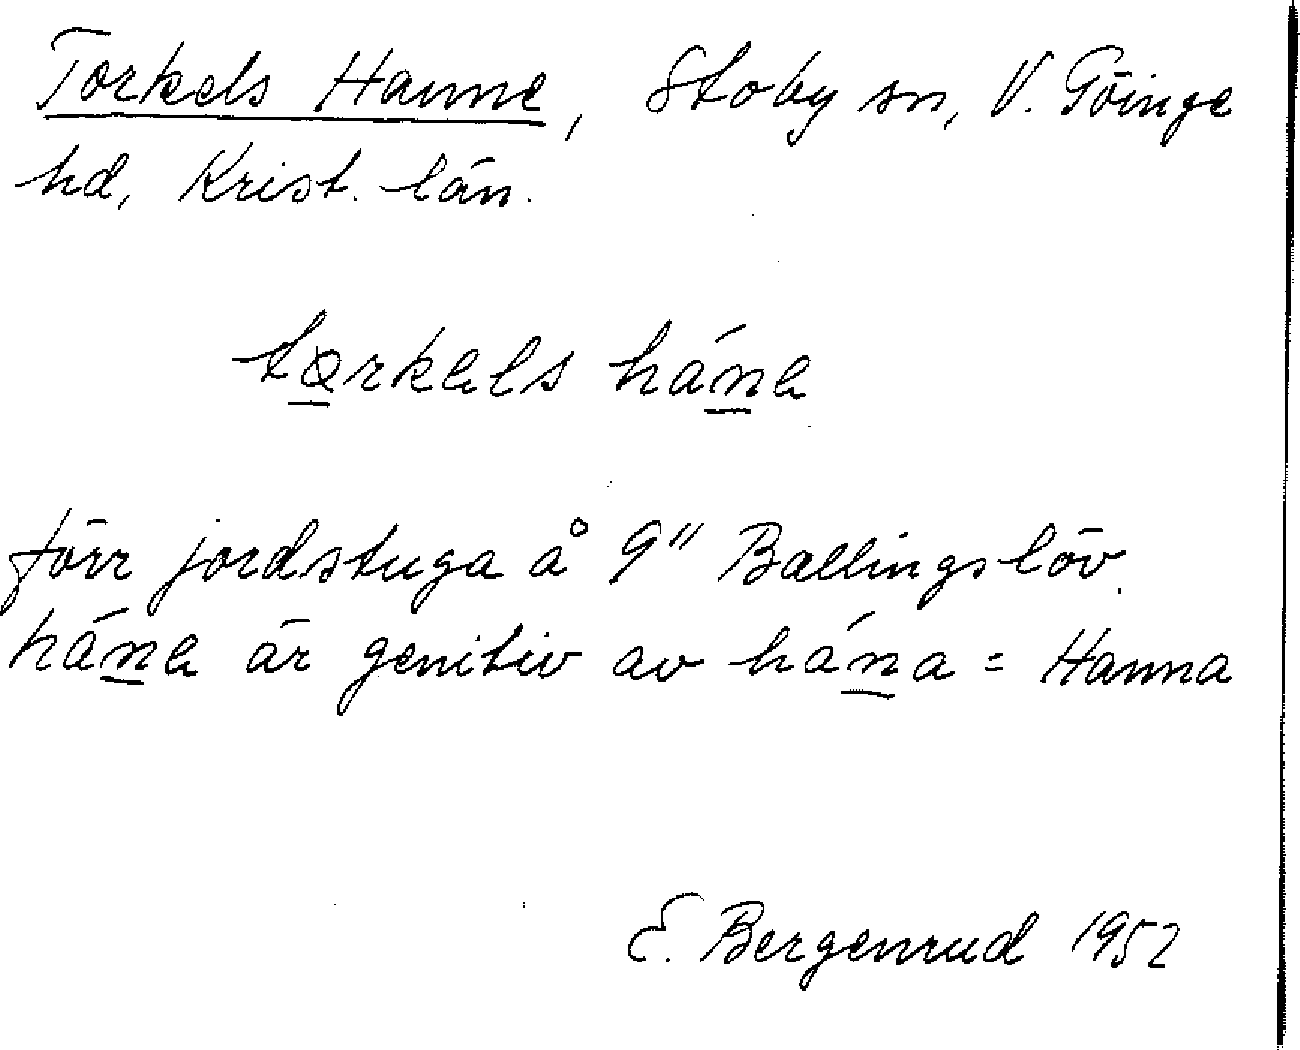 Torkels Hanne, Stoby sn, V. Göinge
hd, Krist. län.
tɷrkals hána
förr jordstuga å 9" Ballingslöv.
hána är genitiv av hána = Hanna
E. Bergenrud 1952